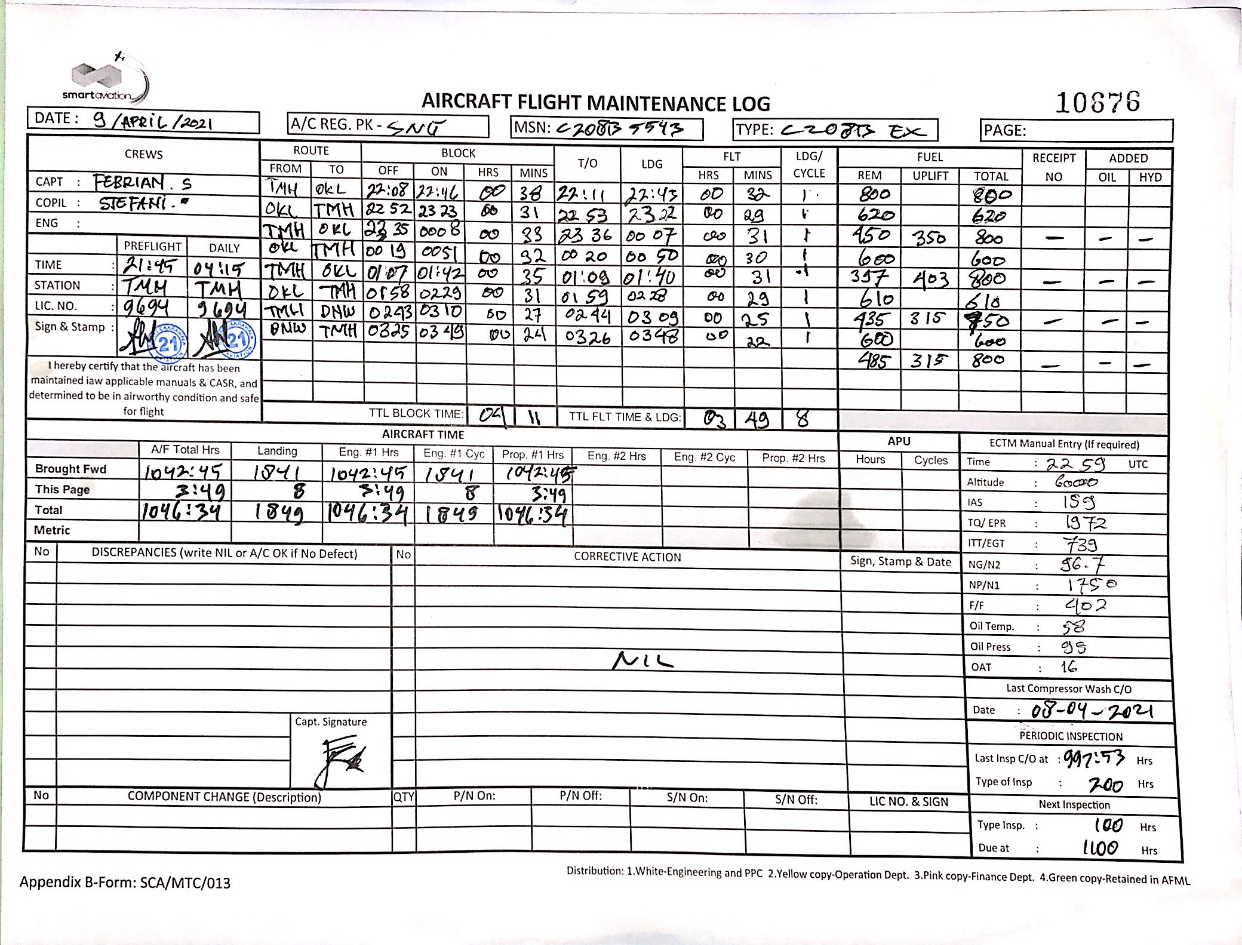 smartaviation
AIRCRAFT FLIGHT MAINTENANCE LOG
10876
DATE : 9/APRIL/2021
A/C REG. PK - SNG
MSN: C208B 5543
TYPE: C208B EX
PAGE:
CREWS ROUTE BLOCK T/O LDG FLT LDG/CYCLE FUEL RECEIPT NO ADDED
FROM TO OFF ON HRS MINS HRS MINS REM UPLIFT TOTAL OIL HYD
CAPT : FEBRIAN. S
COPIL : STEFANI.
ENG :
TMH OKL 22:08 22:46 00 38 22:11 22:43 00 32 1 800 800
OKL TMH 22 52 23 23 00 31 22 53 23 22 00 29 1 620 620
TMH OKL 23 35 0008 00 33 23 36 00 07 00 31 1 450 350 800 — — —
OKL TMH 00 19 0051 00 32 00 20 00 50 00 30 1 600 600
TMH OKL 01:07 01:42 00 35 01:09 01:40 00 31 1 397 403 800 — — —
OKL TMH 0158 0229 00 31 01 59 0228 00 29 1 610 610
TMH DNW 0243 0310 00 27 0244 03 09 00 25 1 435 315 750 — — —
DNW TMH 0325 03 49 00 24 0326 0348 00 22 1 600 600
485 315 800 — — —
PREFLIGHT DAILY
TIME : 21:45 04:15
STATION : TMH TMH
LIC. NO. : 9694 9694
Sign & Stamp : 21 21
I hereby certify that the aircraft has been
maintained iaw applicable manuals & CASR, and
determined to be in airworthy condition and safe
for flight
TTL BLOCK TIME: 04 11 TTL FLT TIME & LDG: 03 49 8
AIRCRAFT TIME
A/F Total Hrs Landing Eng. #1 Hrs Eng. #1 Cyc Prop. #1 Hrs Eng. #2 Hrs Eng. #2 Cyc Prop. #2 Hrs
Brought Fwd 1042:45 1841 1042:45 1841 1042:45
This Page 3:49 8 3:49 8 3:49
Total 1046:34 1849 1046:34 1849 1046:34
Metric
APU
Hours Cycles
ECTM Manual Entry (If required)
Time : 22 59 UTC
Altitude : 6000
IAS : 159
TQ/ EPR : 1972
ITT/EGT : 739
NG/N2 : 96.7
NP/N1 : 1750
F/F : 402
Oil Temp. : 58
Oil Press : 95
OAT : 16
Last Compressor Wash C/O
Date : 08-04-2021
PERIODIC INSPECTION
Last Insp C/O at : 997:53 Hrs
Type of Insp : 200 Hrs
Next Inspection
Type Insp. : 100 Hrs
Due at : 1100 Hrs
No DISCREPANCIES (write NIL or A/C OK if No Defect) No CORRECTIVE ACTION Sign, Stamp & Date
NIL
Capt. Signature
No COMPONENT CHANGE (Description) QTY P/N On: P/N Off: S/N On: S/N Off: LIC NO. & SIGN
Distribution: 1.White-Engineering and PPC 2.Yellow copy-Operation Dept. 3.Pink copy-Finance Dept. 4.Green copy-Retained in AFML
Appendix B-Form: SCA/MTC/013